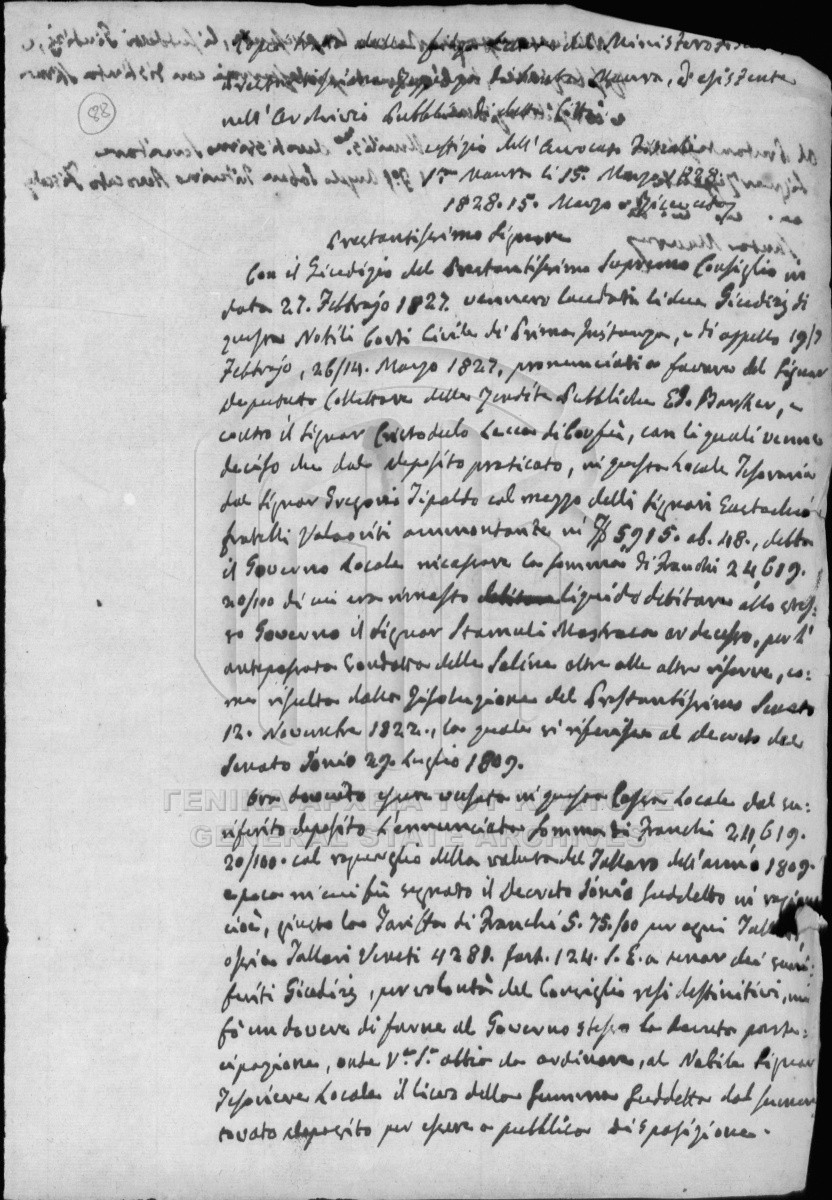 Copia tratta dalla filza del Ministero Fiscale
nell'Archivio Pubblico di detta Città
88
Uffizio dell'Avvocato Fiscale
Sta. Maura li 15. Marzo 1828
1828. 15. Marzo
Prestantissimo Signore
Con il Giudizio del Prestantissimo Supremo Consiglio in
data 27. Febbrajo 1827. vennero laudati li due Giudizj di
queste Nobili Corti Civile di Prima Instanza, e di appello 19/7
Febbrajo, 26/14. Marzo 1827, pronunciati a favore del Signor
Deputato Collettore delle Rendite Pubbliche Ed. Barker, e
contro il Signor Cristodulo Lecca di Corfù, con li quali venne
deciso che dal deposito praticato, in questa Locale Tesoreria
dal Signor Gregorio Tipaldo col mezzo delli Signori Eustachio
fratelli Valaoriti ammontante in 5915. ob. 48., debba
il Governo Locale ricevere la somma di Franchi 24619.
20/100 di cui era rimasto liquido debitore allo stes-
so Governo il Signor Stamuli Mastraca or decesso, per l'
antepassata condotta delle Saline oltre alle altre riserve, co-
me risulta dalla Risoluzione del Prestantissimo Senato
12. Novembre 1822., la quale si riferisce al decreto del
Senato Jonio 29. Luglio 1809.
Ora dovendo essere versata in questa Cassa Locale dal su-
riferito deposito l'annunciata somma di Franchi 24619.
20/100. col ragguaglio della valuta del Tallaro dell'anno 1809.
epoca in cui fù segnato il Decreto Jonio suddetto in ragione
cioè, giusto la Tariffa di Franchi 5. 75/100 per ogni Tallaro,
ossia Tallari Veneti 4281. fort. 124. S. E. a tenor dei surri-
feriti Giudizj, per volontà del Consiglio resi deffinitivi, mi
fò un dovere di farne al Governo stesso la dovuta parte-
cipazione, onde Va. Sa. abbia da ordinare, al Nobile Signor
Tesoriere Locale il liero della Summa Suddetta dal summen-
tovato deposito per essere a pubblica disposizione.
ΓΕΝΙΚΑ ΑΡΧΕΙΑ ΤΟΥ ΚΡΑΤΟΥΣ
GENERAL STATE ARCHIVES